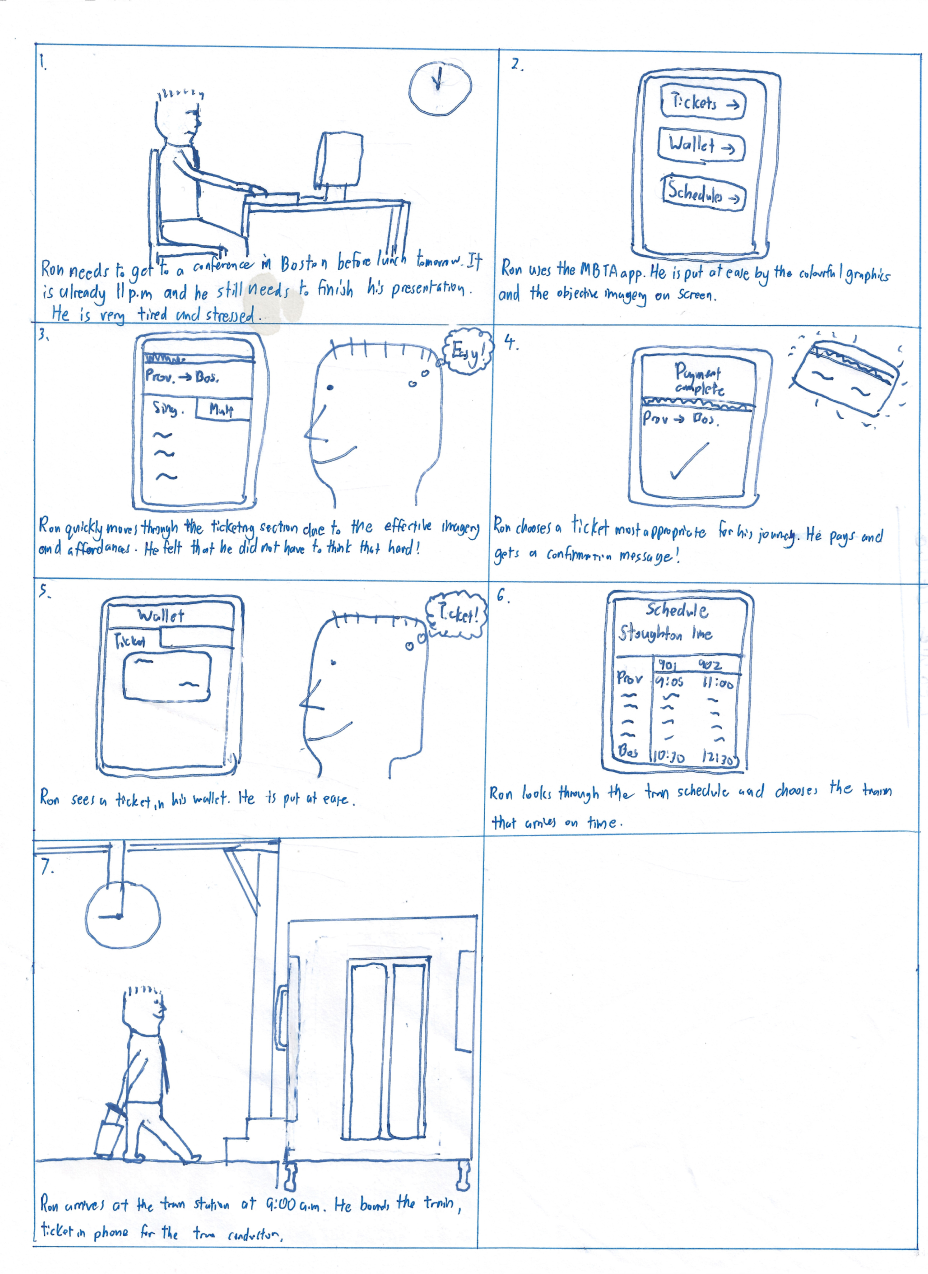 1.
Ron needs to get to a conference in Boston before lunch tomorrow. It
is already 11 p.m and he still needs to finish his presentation.
He is very tired and stressed.
2.
Tickets →
Wallet →
Schedules →
Ron uses the MBTA app. He is put at ease by the colourful graphics
and the objective imagery on screen.
3.
Prov. → Bos.
Sing. Mult
Easy!
Ron quickly moves through the ticketing section due to the effective imagery
and affordances. He felt that he did not have to think that hard!
4.
Payment
complete
Prov → Bos.
Ron chooses a ticket most appropriate for his journey. He pays and
gets a confirmation message!
5.
Wallet
Ticket
Ticket!
Ron sees a ticket in his wallet. He is put at ease.
6.
Schedule
Stoughton line
901 902
Prov 9:05 11:00
Bos 10:30 12:30
Ron looks through the train schedule and chooses the train
that arrives on time.
7.
Ron arrives at the train station at 9:00 a.m. He boards the train,
ticket in phone for the train conductor.